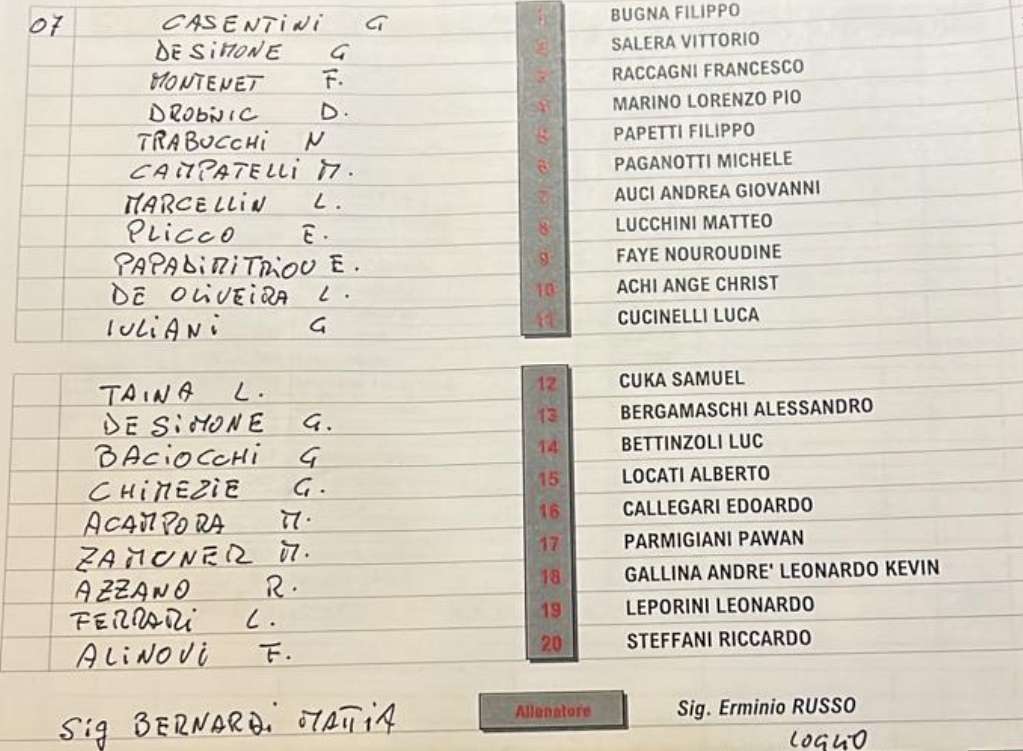 07 CASENTINI G 1 BUGNA FILIPPO
DE SIMONE G 2 SALERA VITTORIO
MONTENET F. 3 RACCAGNI FRANCESCO
DROBNIC D. 4 MARINO LORENZO PIO
TRABUCCHI N 5 PAPETTI FILIPPO
CAMPATELLI M. 6 PAGANOTTI MICHELE
MARCELLIN L. 7 AUCI ANDREA GIOVANNI
PLICCO E. 8 LUCCHINI MATTEO
PAPADIMITRIOU E. 9 FAYE NOUROUDINE
DE OLIVEIRA L. 10 ACHI ANGE CHRIST
IULIANI G 11 CUCINELLI LUCA
TAINA L. 12 CUKA SAMUEL
DE SIMONE G. 13 BERGAMASCHI ALESSANDRO
BACIOCCHI G 14 BETTINZOLI LUC
CHIMEZIE G. 15 LOCATI ALBERTO
ACAMPORA M. 16 CALLEGARI EDOARDO
ZAMUNER M. 17 PARMIGIANI PAWAN
AZZANO R. 18 GALLINA ANDRE' LEONARDO KEVIN
FERRARI L. 19 LEPORINI LEONARDO
ALINOVI F. 20 STEFFANI RICCARDO
Sig BERNARDI MATTIA Allenatore Sig. Erminio RUSSO